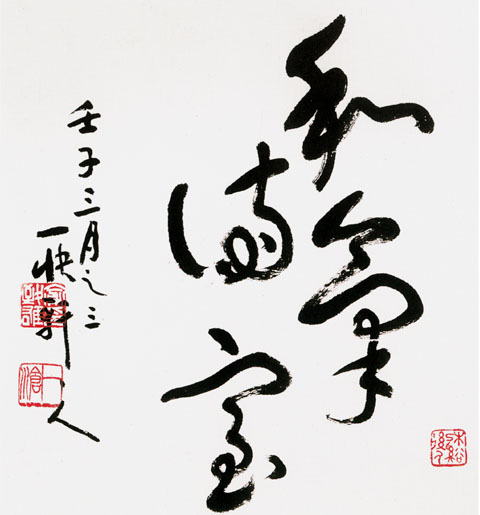 和氣
滿室
壬子三月之三
一快軒人